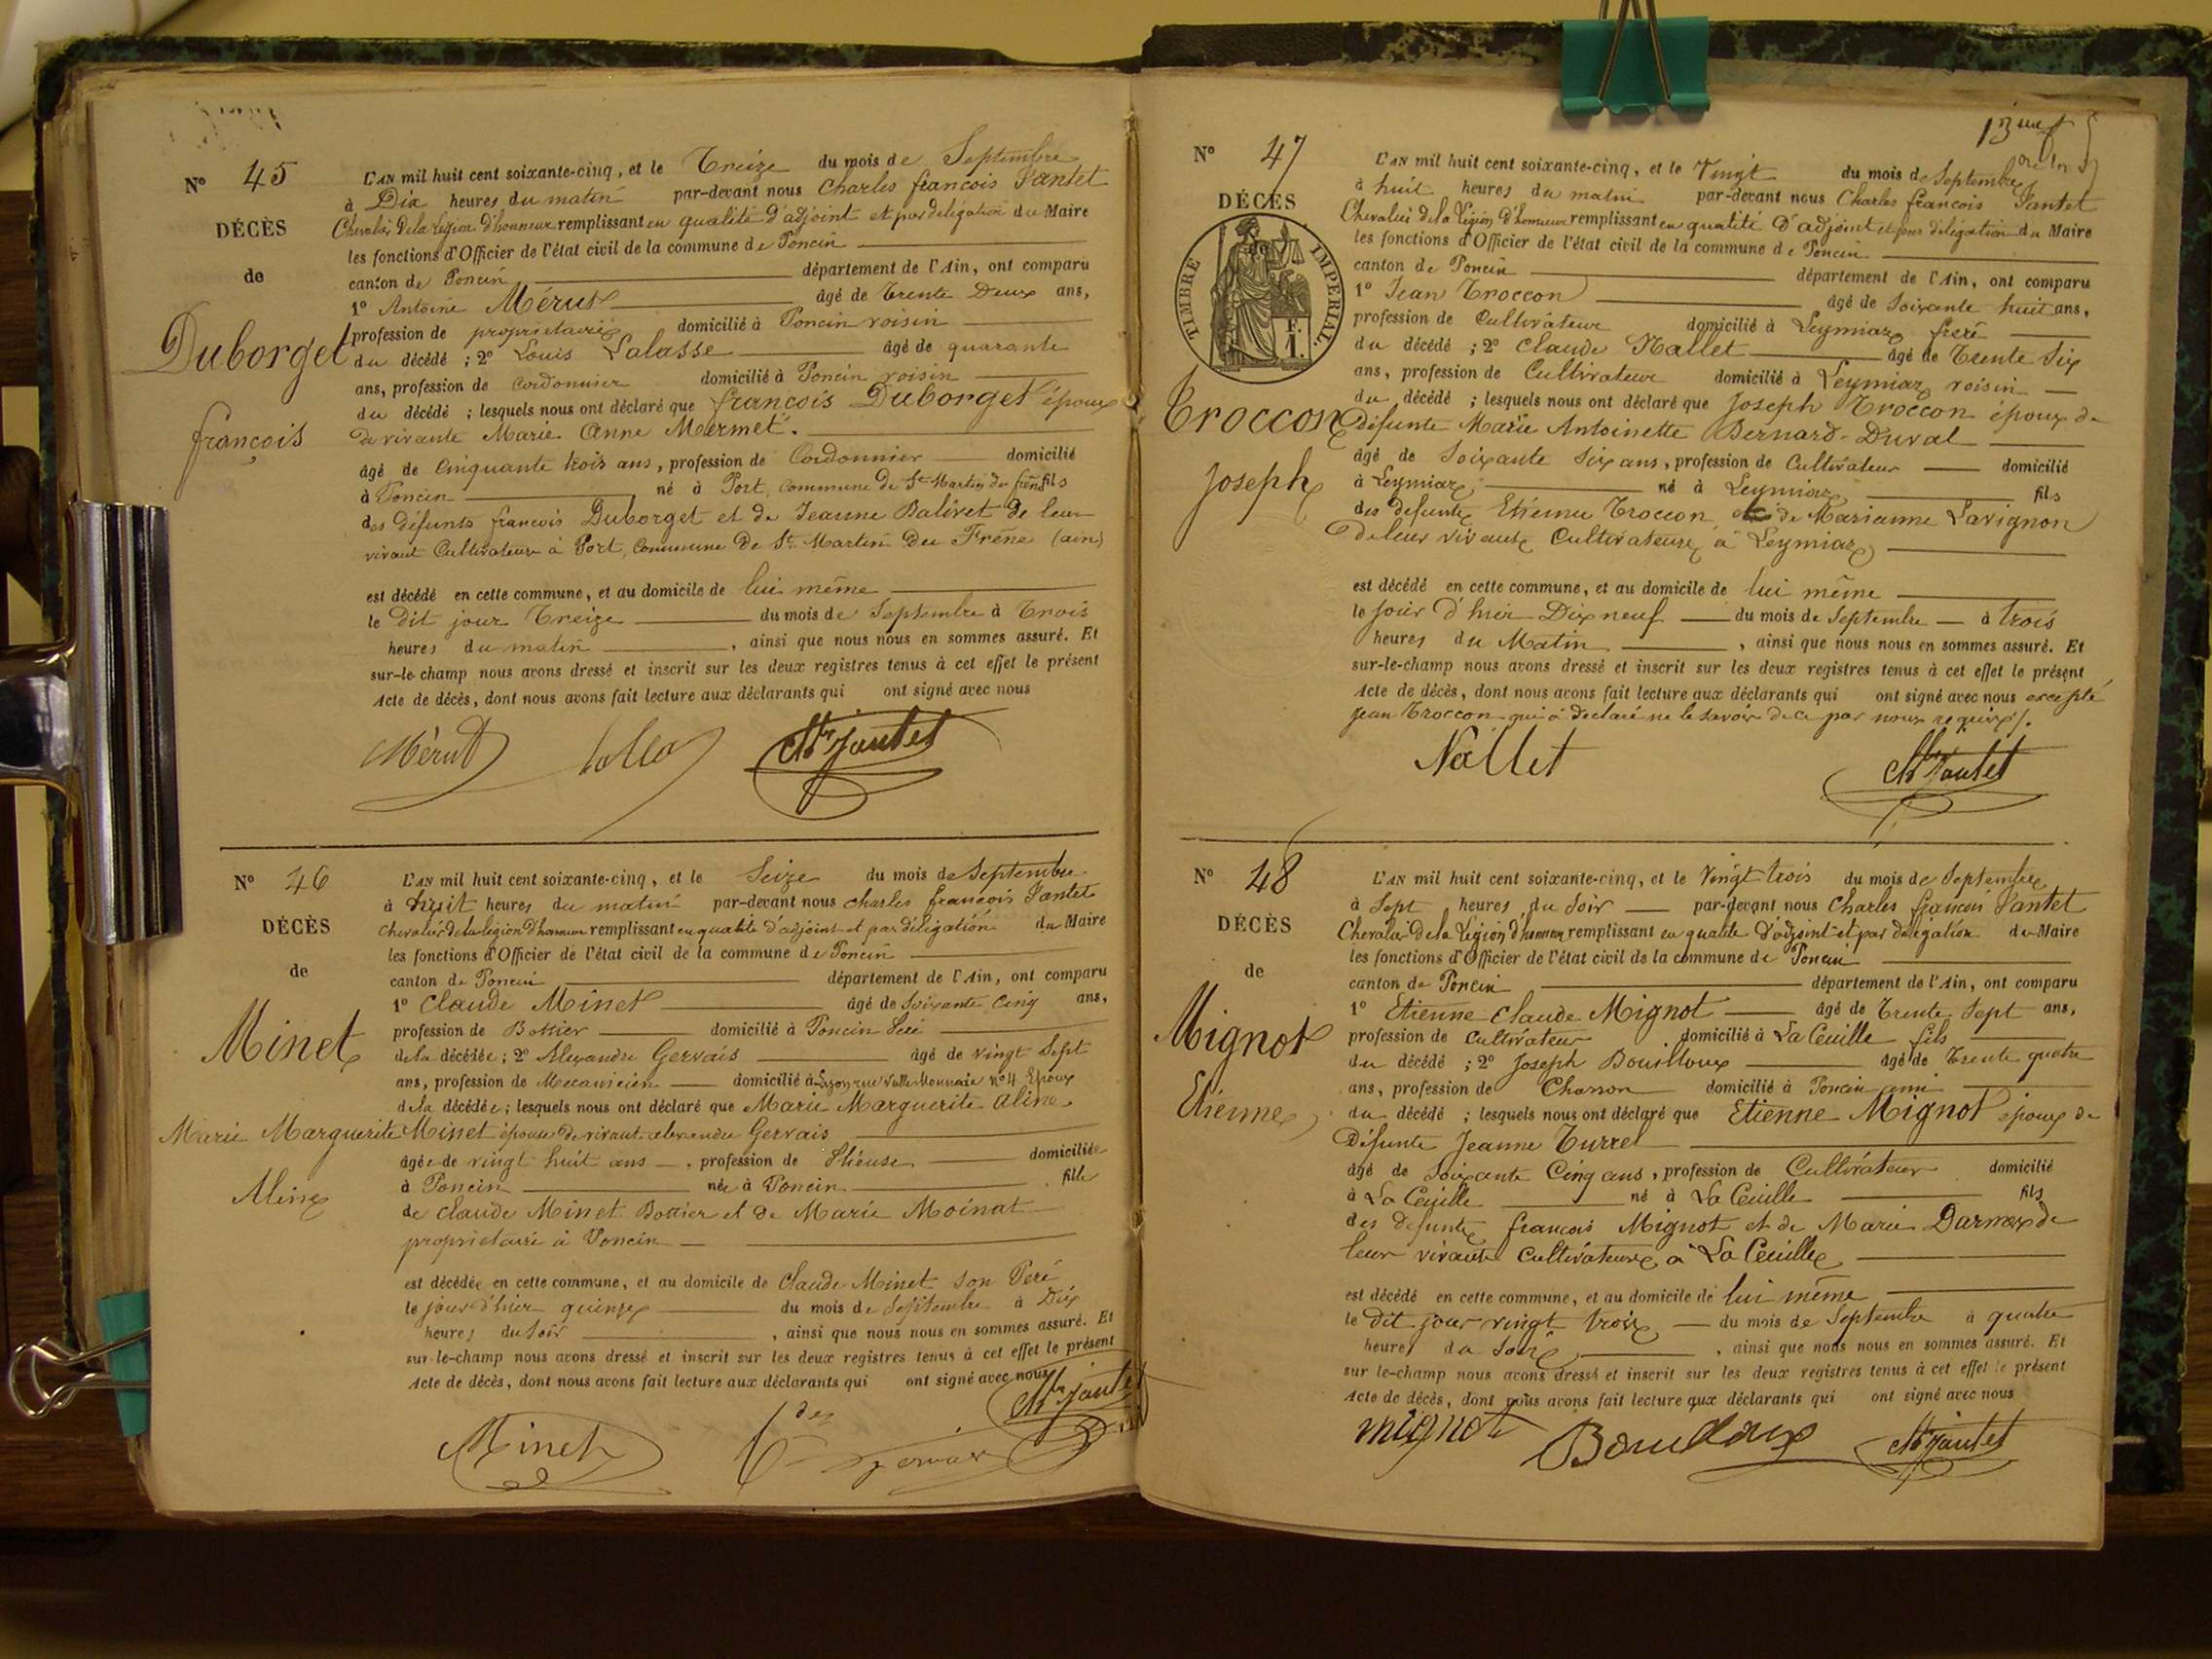 Nº 45
DÉCÈS
de
Duborget
françois
L'AN mil huit cent soixante-cinq, et le Treize du mois de Septembre
à Dix heures du matin par-devant nous Charles francois Jantet
Chevalier De la Légion d'honneur remplissant en qualité d'adjoint et par délégation du Maire
les fonctions d'Officier de l'état civil de la commune de Poncin
canton de Poncin département de l'Ain, ont comparu
1º Antoine Mérut âgé de Trente Deux ans,
profession de proprietaire domicilié à Poncin voisin
du décédé ; 2º Louis Lalasse âgé de quarante
ans, profession de Cordonnier domicilié à Poncin voisin
du décédé ; lesquels nous ont déclaré que françois Duborget époux
de vivante Marie Anne Mermet.
âgé de Cinquante trois ans, profession de Cordonnier domicilié
à Poncin né à Port, Commune de St Martin du frêne fils
des défunts francois Duborget et de Jeanne Balivet de leur
vivant Cultivateur à Port, Commune De St Martin Du Frêne (ain)
est décédé en cette commune, et au domicile de lui même
le dit jour Treize du mois de Septembre à Trois
heures du matin , ainsi que nous nous en sommes assuré. Et
sur-le-champ nous avons dressé et inscrit sur les deux registres tenus à cet effet le présent
Acte de décès, dont nous avons fait lecture aux déclarants qui ont signé avec nous
Mérut Ch Jantet
Nº 46
DÉCÈS
de
Minet
Marie Marguerite
Aline
L'AN mil huit cent soixante-cinq, et le Seize du mois de Septembre
à huit heures du matin par-devant nous Charles francois Jantet
Chevalier de la légion d'honneur remplissant en qualité d'adjoint et par délégation du Maire
les fonctions d'Officier de l'état civil de la commune de Poncin
canton de Poncin département de l'Ain, ont comparu
1º Claude Minet âgé de Soixante Cinq ans,
profession de Bottier domicilié à Poncin
de la décédée ; 2º Alexandre Gervais âgé de vingt Sept
ans, profession de Mecanicien domicilié à Lyon rue Monnaie nº 4 Epoux
de la décédée ; lesquels nous ont déclaré que Marie Marguerite Aline
Minet épouse de vivant alexandre Gervais
âgée de vingt huit ans , profession de domiciliée
à Poncin née à Poncin fille
de Claude Minet Bottier et de Marie Moinat
proprietaire à Poncin
est décédée en cette commune, et au domicile de Claude Minet son Père
le jour d'hier quinze du mois de Septembre à Dix
heures du Soir , ainsi que nous nous en sommes assuré. Et
sur-le-champ nous avons dressé et inscrit sur les deux registres tenus à cet effet le présent
Acte de décès, dont nous avons fait lecture aux déclarants qui ont signé avec nous
Minet Gervais Ch Jantet
Nº 47
DÉCÈS
TIMBRE IMPÉRIAL.
1 F.
Troccon
Joseph
L'AN mil huit cent soixante-cinq, et le Vingt du mois de Septembre
à huit heures du matin par-devant nous Charles francois Jantet
Chevalier de la Légion d'honneur remplissant en qualité d'adjoint et par délégation du Maire
les fonctions d'Officier de l'état civil de la commune de Poncin
canton de Poncin département de l'Ain, ont comparu
1º Jean Troccon âgé de Soixante huit ans,
profession de Cultivateur domicilié à Leymiaz frère
du décédé ; 2º Claude Nallet âgé de Trente Six
ans, profession de Cultivateur domicilié à Leymiaz voisin
du décédé ; lesquels nous ont déclaré que Joseph Troccon époux de
défunte Marie Antoinette Bernard-Duval
âgé de Soixante Six ans, profession de Cultivateur domicilié
à Leymiaz né à Leymiaz fils
des defunts Etienne Troccon et de Marianne Lavignon
De leur vivants Cultivateurs à Leymiaz
est décédé en cette commune, et au domicile de lui même
le jour d'hier Dix neuf du mois de Septembre à trois
heures du Matin , ainsi que nous nous en sommes assuré. Et
sur-le-champ nous avons dressé et inscrit sur les deux registres tenus à cet effet le présent
Acte de décès, dont nous avons fait lecture aux déclarants qui ont signé avec nous excepté
Jean Troccon qui a declaré ne le savoir de ce par nous requis.
Nallet Ch Jantet
Nº 48
DÉCÈS
de
Mignot
Etienne
L'AN mil huit cent soixante-cinq, et le Vingt trois du mois de Septembre
à Sept heures du Soir par-devant nous Charles françois Jantet
Chevalier de la Légion d'honneur remplissant en qualité d'adjoint et par délégation du Maire
les fonctions d'Officier de l'état civil de la commune de Poncin
canton de Poncin département de l'Ain, ont comparu
1º Etienne Claude Mignot âgé de Trente Sept ans,
profession de Cultivateur domicilié à La Ceuille fils
du décédé ; 2º Joseph Bouilloux âgé de Trente quatre
ans, profession de Charron domicilié à Poncin ami
du décédé ; lesquels nous ont déclaré que Etienne Mignot époux de
Défunte Jeanne Turrel
âgé de Soixante Cinq ans, profession de Cultivateur domicilié
à La Ceuille né à La Ceuille fils
des defunts francois Mignot et de Marie Darmex de
leur vivants Cultivateurs à La Ceuille
est décédé en cette commune, et au domicile de lui même
le dit jour vingt trois du mois de Septembre à quatre
heures du Soir , ainsi que nous nous en sommes assuré. Et
sur-le-champ nous avons dressé et inscrit sur les deux registres tenus à cet effet le présent
Acte de décès, dont nous avons fait lecture aux déclarants qui ont signé avec nous
mignot Bouilloux Ch Jantet